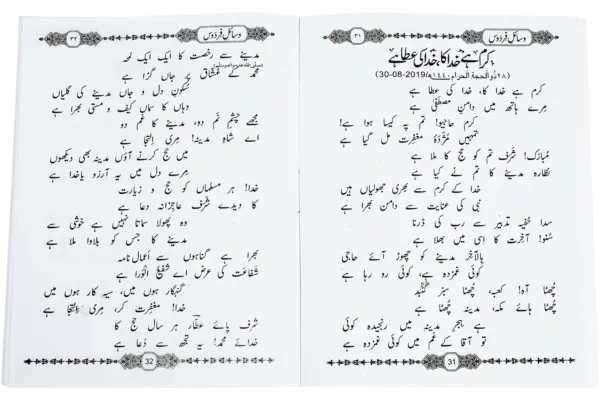 ۳۱
وسائلِ فردوس
کرم ہے خدا کا، خدا کی عطا ہے
(۲۸ ذُوالحجۃِ الحرام ۱۴۴۰ھ/30-08-2019)
کرم ہے خدا کا، خدا کی عطا ہے
مِرے ہاتھ میں دامنِ مصطفٰے ہے
کرم حاجیو! تم پہ کیسا ہوا ہے!
تمہیں مُژدۂ مغفِرت مل گیا ہے
مُبارَک! شَرَف تم کو حج کا ملا ہے
نظارہ مدینے کا تم نے کیا ہے
خدا کے کرم سے بھری جھولیاں ہیں
نبی کی عنایت سے دامن بھرا ہے
سدا خفیہ تدبیر سے رب کی ڈرنا
سُنو! آخِرت کا اِسی میں بھلا ہے
بالآخر مدینے کو چھوڑ آئے حاجی
کوئی غمزدہ ہے، کوئی رو رہا ہے
چُھٹا آہ! کعبہ، چُھٹا سبز گُنْبَد
چُھٹا ہائے مکہ، مدینہ چُھٹا ہے
ہے ہجرِ مدینہ میں رنجیدہ کوئی
تو آقا کے غم میں کوئی غمزدہ ہے
31
۳۲
وسائلِ فردوس
مدینے سے رخصت کا ایک ایک لمحہ
محمد کے عُشّاق پر جاں گزا ہے
سُکونِ دل و جاں مدینے کی گلیاں
وہاں کا سماں کیف و مستی بھرا ہے
مجھے چشمِ نَم دو، مدینے کا غم دو
اے شاہِ مدینہ! مِری اِلتجا ہے
میں حج کرنے آؤں مدینہ بھی دیکھوں
مِرے دل میں یہ آرزو یاخدا ہے
خدا! ہر مسلماں کو حج و زیارت
کا دیدے شَرَف عاجزانہ دعا ہے
وہ پھولا سماتا نہیں ہے خوشی سے
مدینے کا جس کو بلاوا ملا ہے
بھرا ہے گناہوں سے اعمال نامہ
شَفاعت کی عرض اے شفیعُ الْوَرا ہے
گنہگار ہوں میں، سِیَہ کار ہوں میں
خدا! مغفِرت کر، مِری اِلتجا ہے
شَرَف پائے عطّارؔ ہر سال حج کا
خدائے محمد! یہ تجھ سے دُعا ہے
32